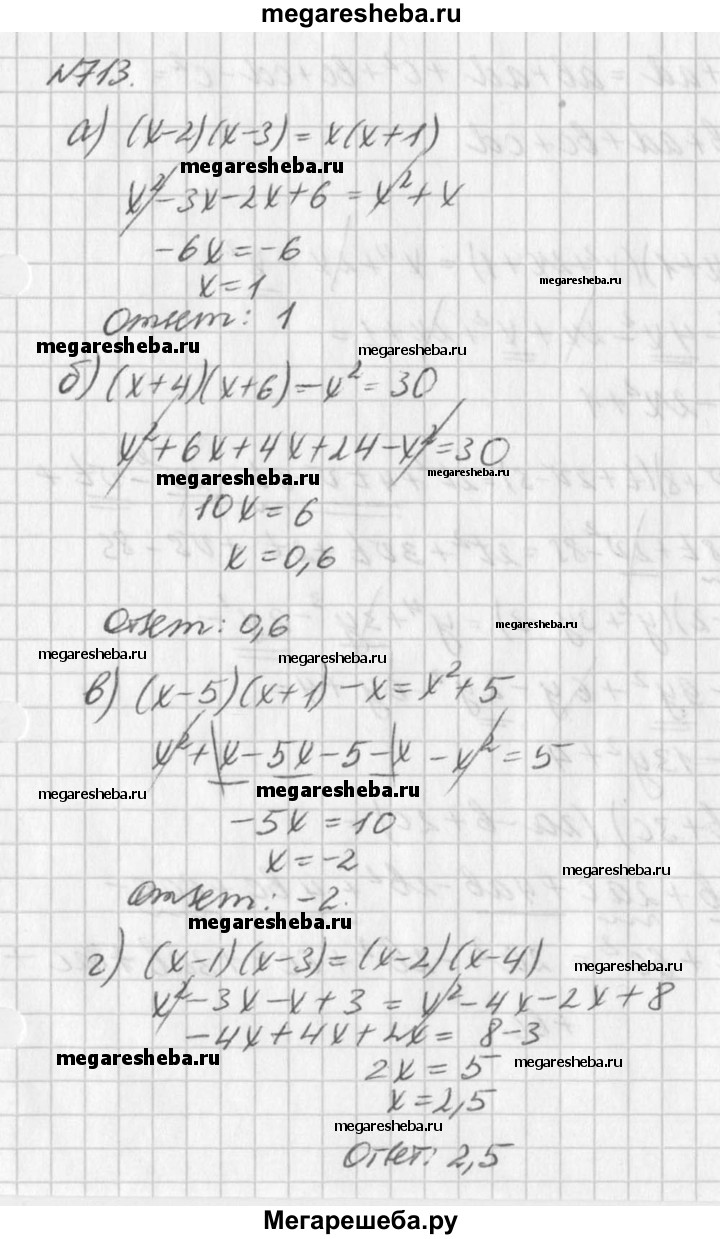 megaresheba.ru
№713.
а) (x-2)(x-3) = x(x+1)
megaresheba.ru
x²-3x-2x+6 = x²+x
-6x = -6
x=1
megaresheba.ru
Ответ: 1
megaresheba.ru
megaresheba.ru
б) (x+4)(x+6)-x² = 30
x²+6x+4x+24-x²=30
megaresheba.ru
megaresheba.ru
10x = 6
x = 0,6
Ответ: 0,6
megaresheba.ru
megaresheba.ru
megaresheba.ru
в) (x-5)(x+1)-x = x²+5
x²+x-5x-5-x-x² = 5
megaresheba.ru
megaresheba.ru
-5x = 10
x = -2
megaresheba.ru
Ответ: -2.
megaresheba.ru
г) (x-1)(x-3) = (x-2)(x-4)
megaresheba.ru
x²-3x-x+3 = x²-4x-2x+8
-4x+4x+2x = 8-3
megaresheba.ru
2x = 5
megaresheba.ru
x = 2,5
megaresheba.ru
Ответ: 2,5
Мегарешеба.ру